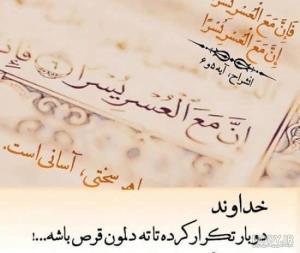 فَإِنَّ مَعَ الْعُسْرِ يُسْرًا
إِنَّ مَعَ الْعُسْرِ يُسْرًا
انشراح، آیه ۵ و ۶
اِنَّ مَعَ الْعُسْرِ يُسْرًا
سختی، آسانی است.
خداوند
دوبار تکرار کرده تا ته دلمون قرص باشه...!